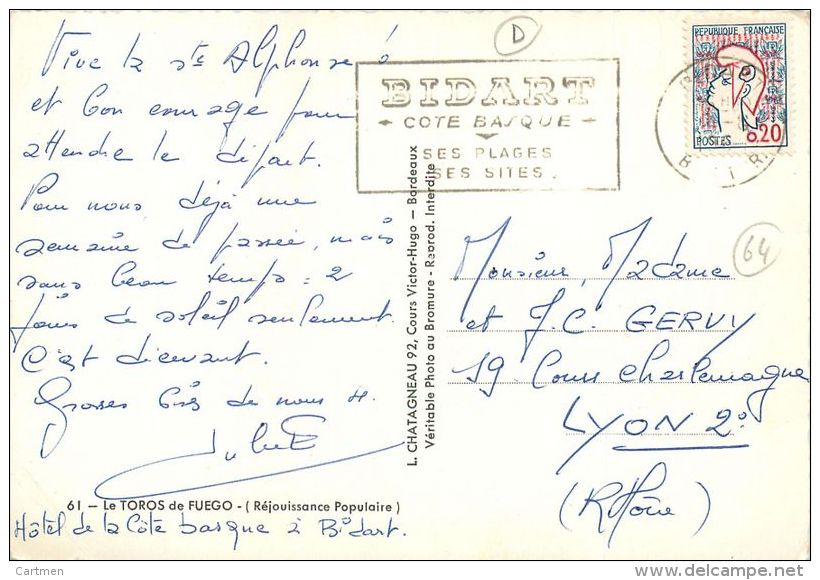 Vive la ste Alphonse
et bon courage pour
attendre le départ.
Pour nous déjà une
semaine de passée, mais
sans beau temps = 2
jours de soleil seulement.
C'est décevant.
Grosses bises de nous 4.
61 — Le TOROS de FUEGO - ( Réjouissance Populaire )
Hôtel de la Côte basque à Bidart.
L. CHATAGNEAU 92, Cours Victor-Hugo — Bordeaux
Véritable Photo au Bromure - Reprod. Interdite
D
BIDART
COTE BASQUE
SES PLAGES
SES SITES.
REPUBLIQUE FRANÇAISE
POSTES 0,20
64
Monsieur, Madame
et J.C. GERVY
19. Cours Charlemagne
LYON 2°
(Rhône)
Cartmen
www.delcampe.net